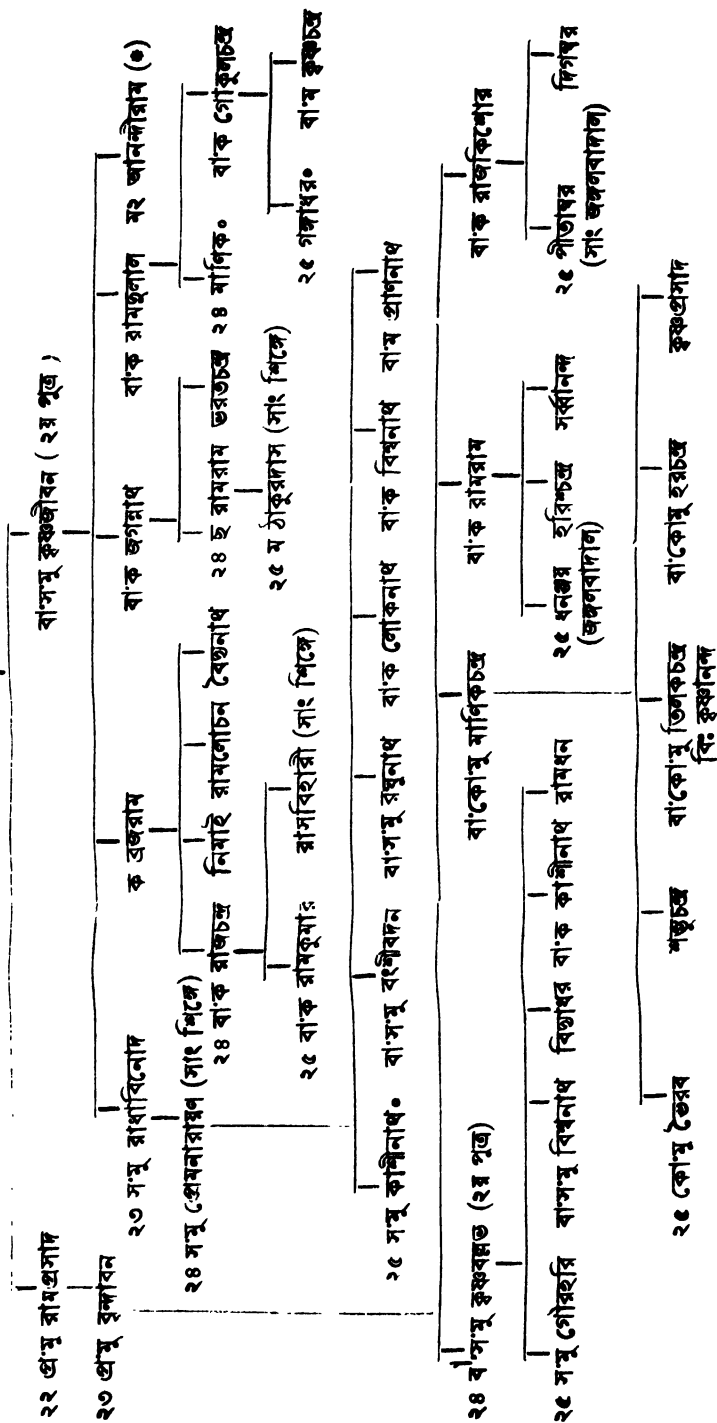 ২২ প্র·মু রামপ্রসাদ বা·স·মু কৃষ্ণজীবন (২য় পুত্র)
২৩ প্র·মু বৃন্দাবন
২৩ স·মু রাধাবিনোদ ক ব্রজরাম বা·ক জগন্নাথ বা·ক রামদুলাল ম২ আনন্দীরাম (॰)
২৪ স·মু প্রেমনারায়ণ (সাং শিঙ্গে)
২৪ বা·ক রাজচন্দ্র নিমাই রামলোচন বৈদ্যনাথ ২৪ ছ রামরাম ভরতচন্দ্র ২৪ মাণিক॰ বা·ক গোকুলচন্দ্র
২৫ বা·ক রামকুমার রাসবিহারী (সাং শিঙ্গে) ২৫ ম ঠাকুরদাস (সাং শিঙ্গে) ২৫ গঙ্গাধর॰ বা·ম কৃষ্ণচন্দ্র
২৫ স·মু কাশীনাথ॰ বা·স·মু বংশীবদন বা·স·মু রঘুনাথ বা·ক লোকনাথ বা·ক বিশ্বনাথ বা·ম প্রাণনাথ
২৪ বা·স·মু কৃষ্ণবল্লভ (২য় পুত্র) বা·কো·মু মাণিকচন্দ্র বা·ক রামরাম বা·ক রাজকিশোর
২৫ স·মু গৌরহরি বা·স·মু বিশ্বনাথ বিদ্যাধর বা·ক কাশীনাথ রামধন ২৫ ধনঞ্জয় হরিশ্চন্দ্র সর্ব্বানন্দ ২৫ পীতাম্বর দিগম্বর
(জঙ্গলবাদাল) (সাং জঙ্গলবাদাল)
২৫ কো·মু ভৈরব শম্ভুচন্দ্র বা·কো·মু তিলকচন্দ্র বা·কো·মু হরচন্দ্র কৃষ্ণপ্রসাদ
বিঃ কৃষ্ণানন্দ